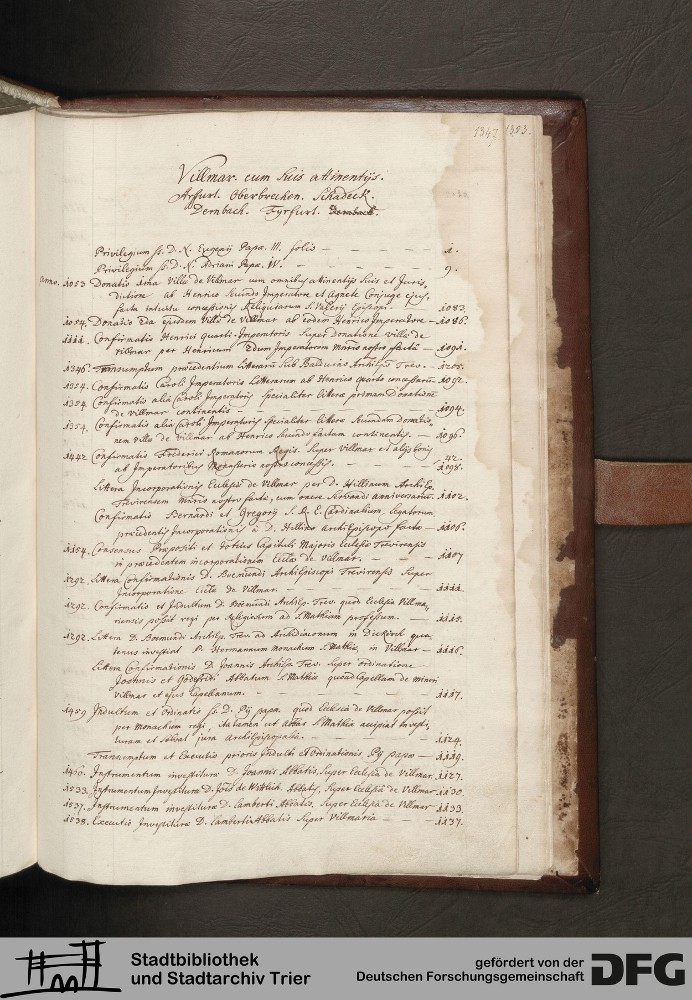 1347. 1323.
Villmar cum suis attinentijs.
Arfurt. Oberbrechen. Schadeck.
Dernbach. Fyrfurt. Dernbach.
Privilegium ss. D. N. Eugenij Papæ. III. folio — 1.
Privilegium ss. D. N. Adriani Papæ. IV. — 9.
anno. 1053 Donatio 1ma Villæ de Villmar cum omnibus attinentijs suis et Juris,
dictione ab Henrico Secundo Imperatore et Agnete Conjuge ejus,
facta intuitu concessionis Reliquiarum S. Valerij Episcopi. 1083.
1054. Donatio 2da ejusdem Villæ de Villmar ab eodem Henrico Imperatore — 1086.
1111. Confirmatio Henrici quarti Imperatoris super Donatione villæ de
villmar per Henricum 2dum Imperatorem Mrio nostro facta — 1091.
1346. Transumptum præcedentium litterarum sub Balduino Archiep. Trev. — 1205.
1354. Confirmatio Caroli Imperatoris litterarum ab Henrico quarto concessarum — 1092.
1354. Confirmatio alia Caroli Imperatoris specialiter litteræ primam Donationem
de villmar continentis — 1094.
1354. Confirmatio alia Caroli Imperatoris specialiter litteræ secundam Donatio,
nem villæ de Villmar ab Henrico secundo factam continentis. — 1096.
1442. Confirmatio Frederici Romanorum Regis super Villmar et alijs bonis
ab Imperatoribus Monasterio nostro concessis. — 1098.
Littera Incorporationis Ecclesiæ de Villmar per D. Hillinum Archiep.
Trevirensem Mrio nostro facta, cum onere servandi anniversarium. 1102.
Confirmatio Bernardi et Gregorij S. R. E. Cardinalium, Legatorum
præcedentis Incorporationis a D. Hillino Archiepiscopo facta — 1106.
1154. Consensus Præpositi et totius Capituli Majoris Ecclesiæ Trevirensis
in præcedentem incorporationem Eccliæ de Villmar. — 1107
1292. Littera confirmationis D. Boemundi Archiepiscopi Trevirensis super
Incorporatione Eccliæ de Villmar. — 1111.
1292. Confirmatio et Indultum D. Boemundi Archiep. Trev. quod Ecclesia Villma,
riensis possit regi per Religiosum ad S. Mathiam professum. — 1115.
1292. Littera D. Boemundi Archiep. Trev. ad Archidiaconum in Dietkirch qua
tenus investiat Fr. Hermannum monachum S. Mathiæ, in Villmar — 1116.
Littera Confirmationis D. Joannis Archiep. Trev. super ordinatione
Joannis et Godefridi Abbatum S. Mathiæ quoad Capellam de
Villmar et ejus Capellanum. — 1117.
1459 Indultum et ordinatio ss. D. Pij papæ quod Ecclesia de Villmar possit
per monachum regi, ita tamen ut Abbas S. Mathiæ accipiat Investi,
turam et solvat jura Archiepiscopalia. — 1124.
Transumptum et Executio prioris Indulti et ordinationis Pij papæ — 1119.
Instrumentum investituræ D. Joannis Abbatis, super Ecclesia de Villmar. 1127.
1533. Instrumentum Investituræ D. Jois de Wittlich Abbatis, super Ecclesia de Villmar 1130.
1537. Instrumentum investituræ D. Lamberti Abbatis, super Ecclesia de Villmar 1133.
1538. Executio Investituræ D. Lamberti Abbatis super Villmaria — 1137.
Stadtbibliothek
und Stadtarchiv Trier
gefördert von der
Deutschen Forschungsgemeinschaft
DFG